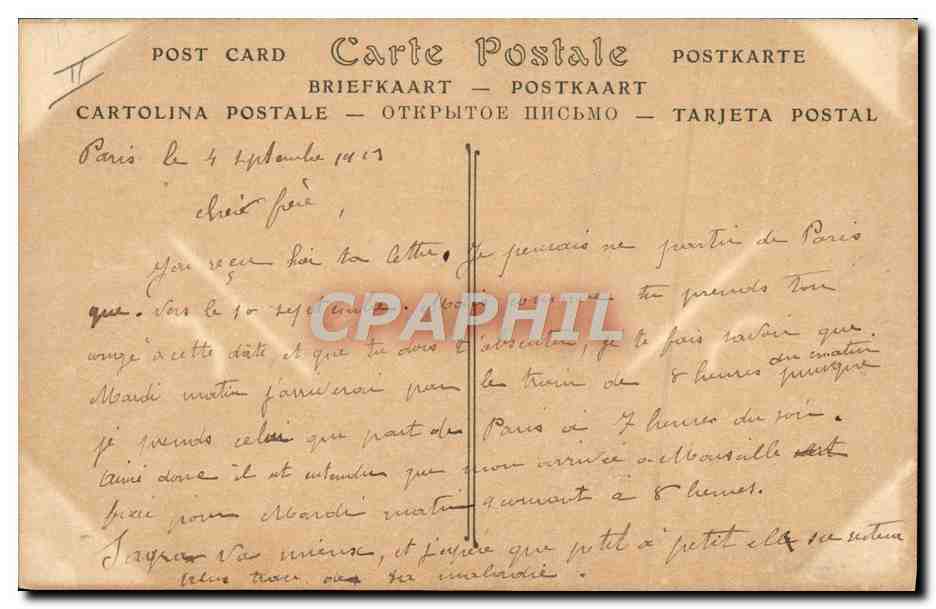 II
POST CARD Carte Postale POSTKARTE
BRIEFKAART — POSTKAART
CARTOLINA POSTALE — ОТКРЫТОЕ ПИСЬМО — TARJETA POSTAL
Paris le 4 septembre 1913
frère,
reçu hier ta lettre. Je pensais ne partir de Paris
que. vers le 10 septembre. Mais comme tu prends ton
congé à cette date et que tu dois t'absenter, je te fais savoir que
Mardi matin j'arriverai par le train de 8 heures du matin puisque
je prends celui qui part de Paris à 7 heures du soir.
Ainsi donc il est entendu que mon arrivée à Marseille est
fixée pour Mardi matin courant à 8 heures.
va mieux, et j'espère que petit à petit elle se
plus trop de sa maladie.
CPAPHIL